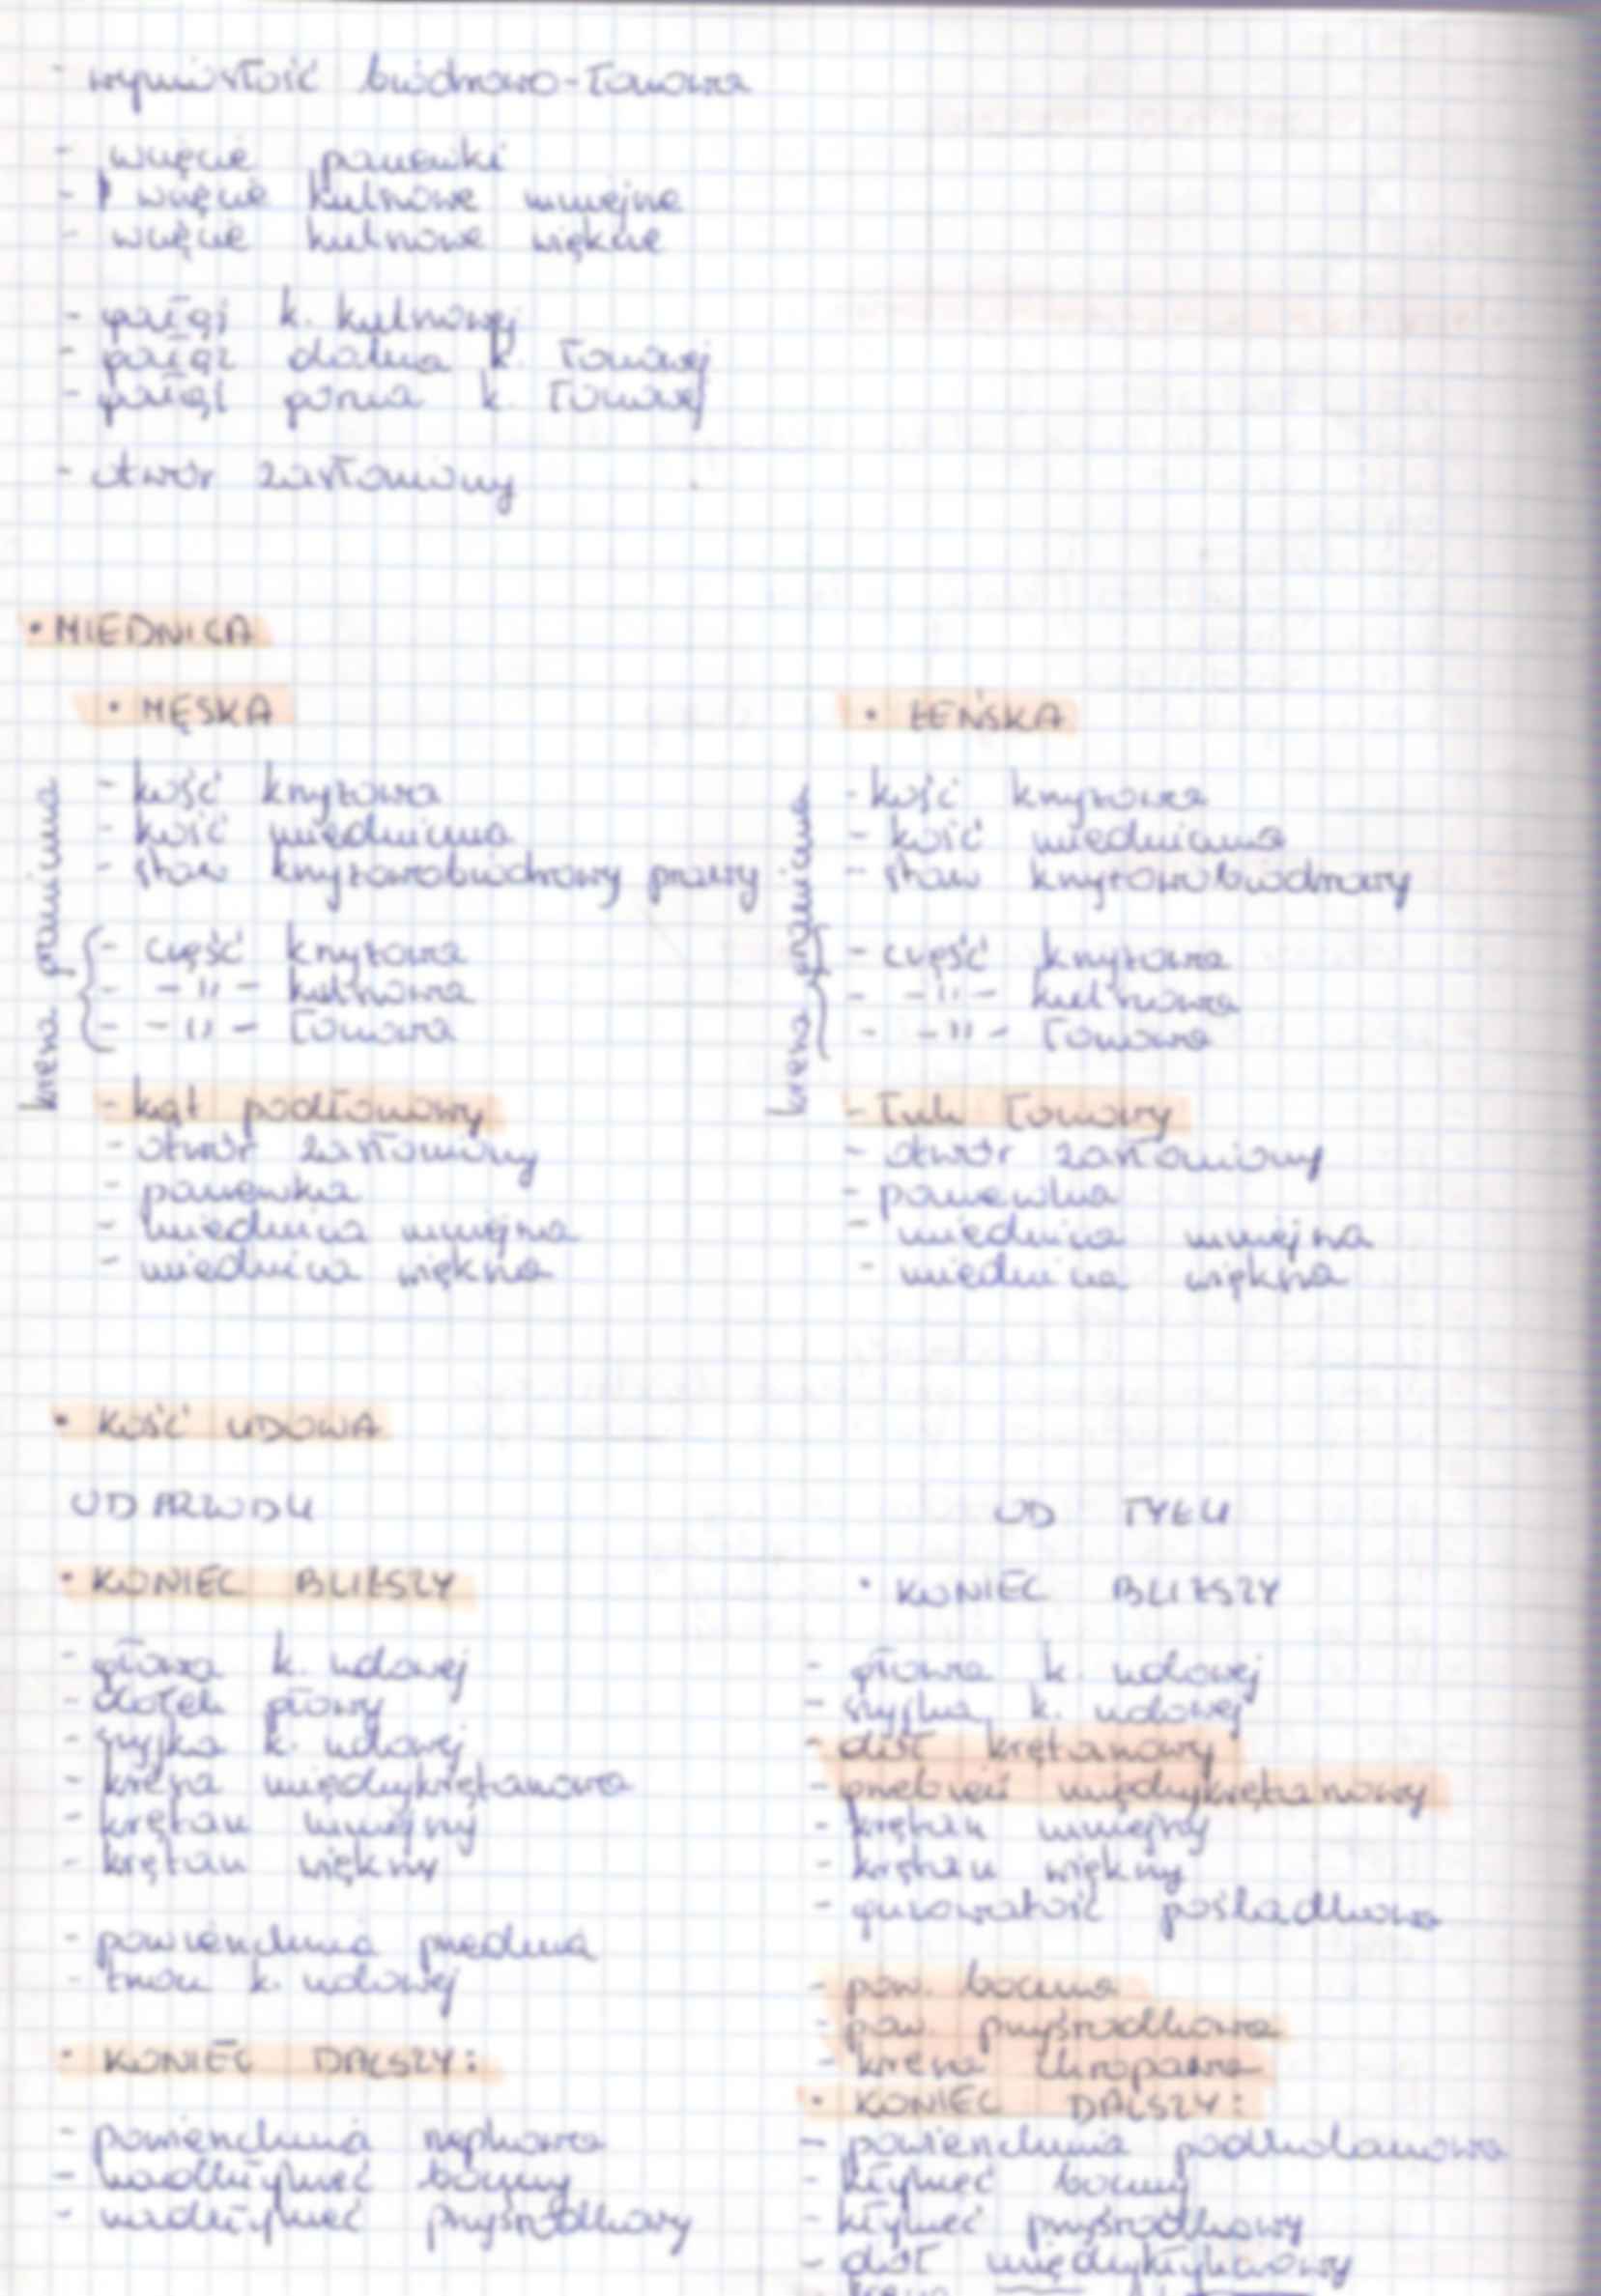 - wyniosłość biodrowo-łonowa
- wcięcie panewki
- wcięcie kulszowe mniejsze
- wcięcie kulszowe większe
- gałąź k. kulszowej
- gałąź dolna k. łonowej
- gałąź górna k. łonowej
- otwór zasłoniony
• MIEDNICA
• MĘSKA
kresa graniczna
- kość krzyżowa
- kość miedniczna
- staw krzyżowobiodrowy prawy
- część krzyżowa
- -"- kulszowa
- -"- łonowa
- kąt podłonowy
- otwór zasłoniony
- panewka
- miednica mniejsza
- miednica większa
• ŻEŃSKA
kresa graniczna
- kość krzyżowa
- kość miedniczna
- staw krzyżowobiodrowy
- część krzyżowa
- -"- kulszowa
- -"- łonowa
- łuk łonowy
- otwór zasłoniony
- panewka
- miednica mniejsza
- miednica większa
• KOŚĆ UDOWA
OD PRZODU
• KONIEC BLIŻSZY
- głowa k. udowej
- dołek głowy
- szyjka k. udowej
- kresa międzykrętarzowa
- krętarz mniejszy
- krętarz większy
- powierzchnia przednia
- trzon k. udowej
• KONIEC DALSZY:
- powierzchnia rzepkowa
- nadkłykieć boczny
- nadkłykieć przyśrodkowy
OD TYŁU
• KONIEC BLIŻSZY
- głowa k. udowej
- szyjka k. udowej
- dół krętarzowy
- grzebień międzykrętarzowy
- krętarz mniejszy
- krętarz większy
- guzowatość pośladkowa
- pow. boczna
- pow. przyśrodkowa
- kresa chropawa
• KONIEC DALSZY:
- powierzchnia podkolanowa
- kłykieć boczny
- kłykieć przyśrodkowy
- dół międzykłykciowy